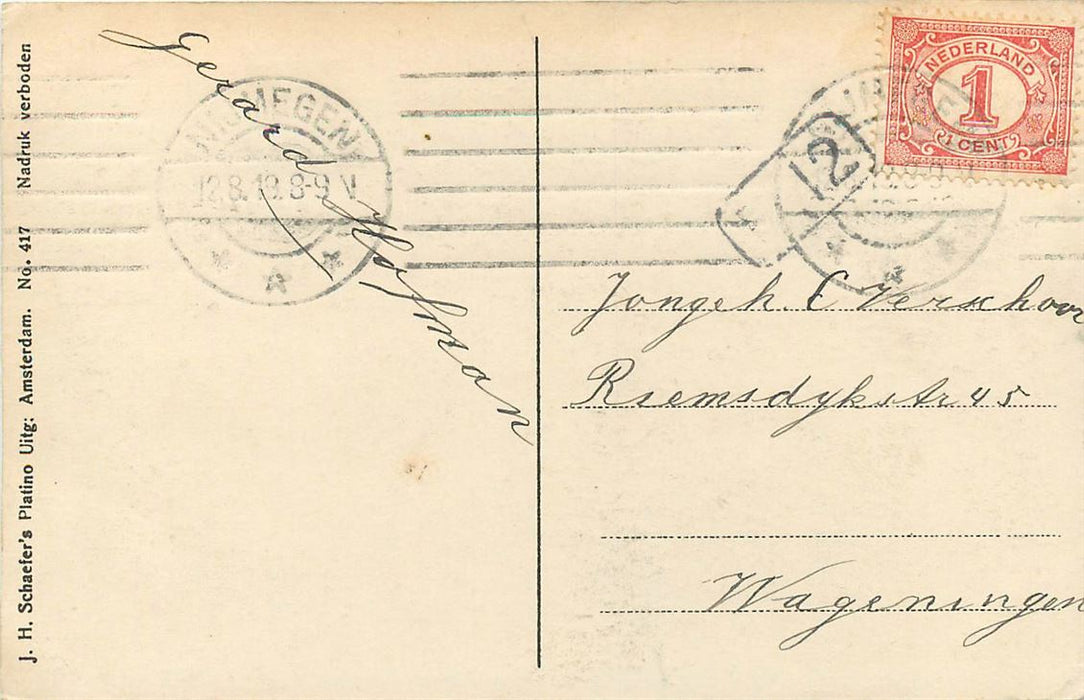 J. H. Schaefer's Platino Uitg: Amsterdam. No. 417 Nadruk verboden
Gerard Hofman
NIJMEGEN
12.8.18.8-9 V
NEDERLAND
1
1 CENT
2
Jongeh. C Verschoor
Riemsdykstr 45
Wageningen